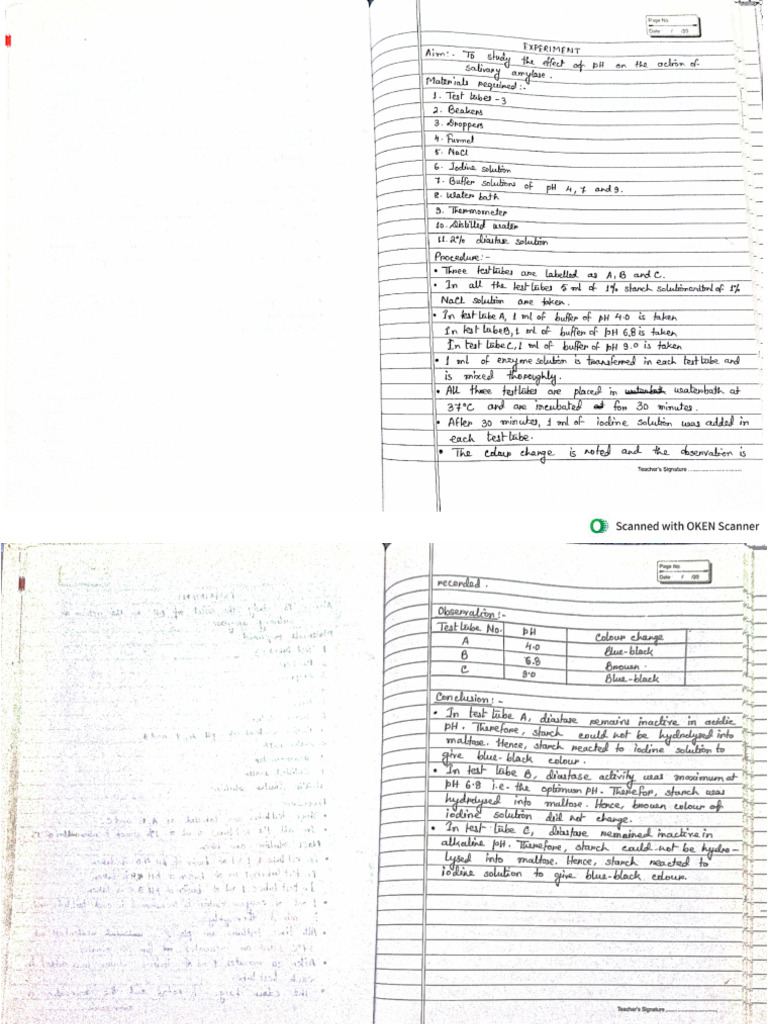 Page No.
Date / /20
EXPERIMENT
Aim:- To study the effect of pH on the action of
salivary amylase.
Materials required:-
1. Test tubes -3
2. Beakers
3. Droppers
4. Funnel
5. NaCl
6. Iodine solution
7. Buffer solutions of pH 4, 7 and 9.
8. Water bath
9. Thermometer
10. Distilled water
11. 2% diastase solution
Procedure:-
• Three test tubes are labelled as A, B and C.
• In all the test tubes 5 ml of 1% starch solution and 1ml of 1%
NaCl solution are taken.
• In test tube A, 1 ml of buffer of pH 4.0 is taken
In test tube B, 1 ml of buffer of pH 6.8 is taken
In test tube C, 1 ml of buffer of pH 9.0 is taken
• 1 ml of enzyme solution is transferred in each test tube and
is mixed thoroughly.
• All three test tubes are placed in waterbath at
37°C and are incubated for 30 minutes.
• After 30 minutes, 1 ml of iodine solution was added in
each test tube.
• The colour change is noted and the observation is
Teacher's Signature
Scanned with OKEN Scanner
Page No.
Date / /20
recorded.
Observation:-
Test tube No. pH Colour change
A 4.0 Blue-black
B 6.8 Brown.
C 9.0 Blue-black
Conclusion:-
• In test tube A, diastase remains inactive in acidic
pH. Therefore, starch could not be hydrolysed into
maltose. Hence, starch reacted to iodine solution to
give blue-black colour.
• In test tube B, diastase activity was maximum at
pH 6.8 i.e. the optimum pH. Therefor, starch was
hydrolysed into maltose. Hence, brown colour of
iodine solution did not change.
• In test tube C, diastase remained inactive in
alkaline pH. Therefore, starch could not be hydro-
lysed into maltose. Hence, starch reacted to
iodine solution to give blue-black colour.
Teacher's Signature